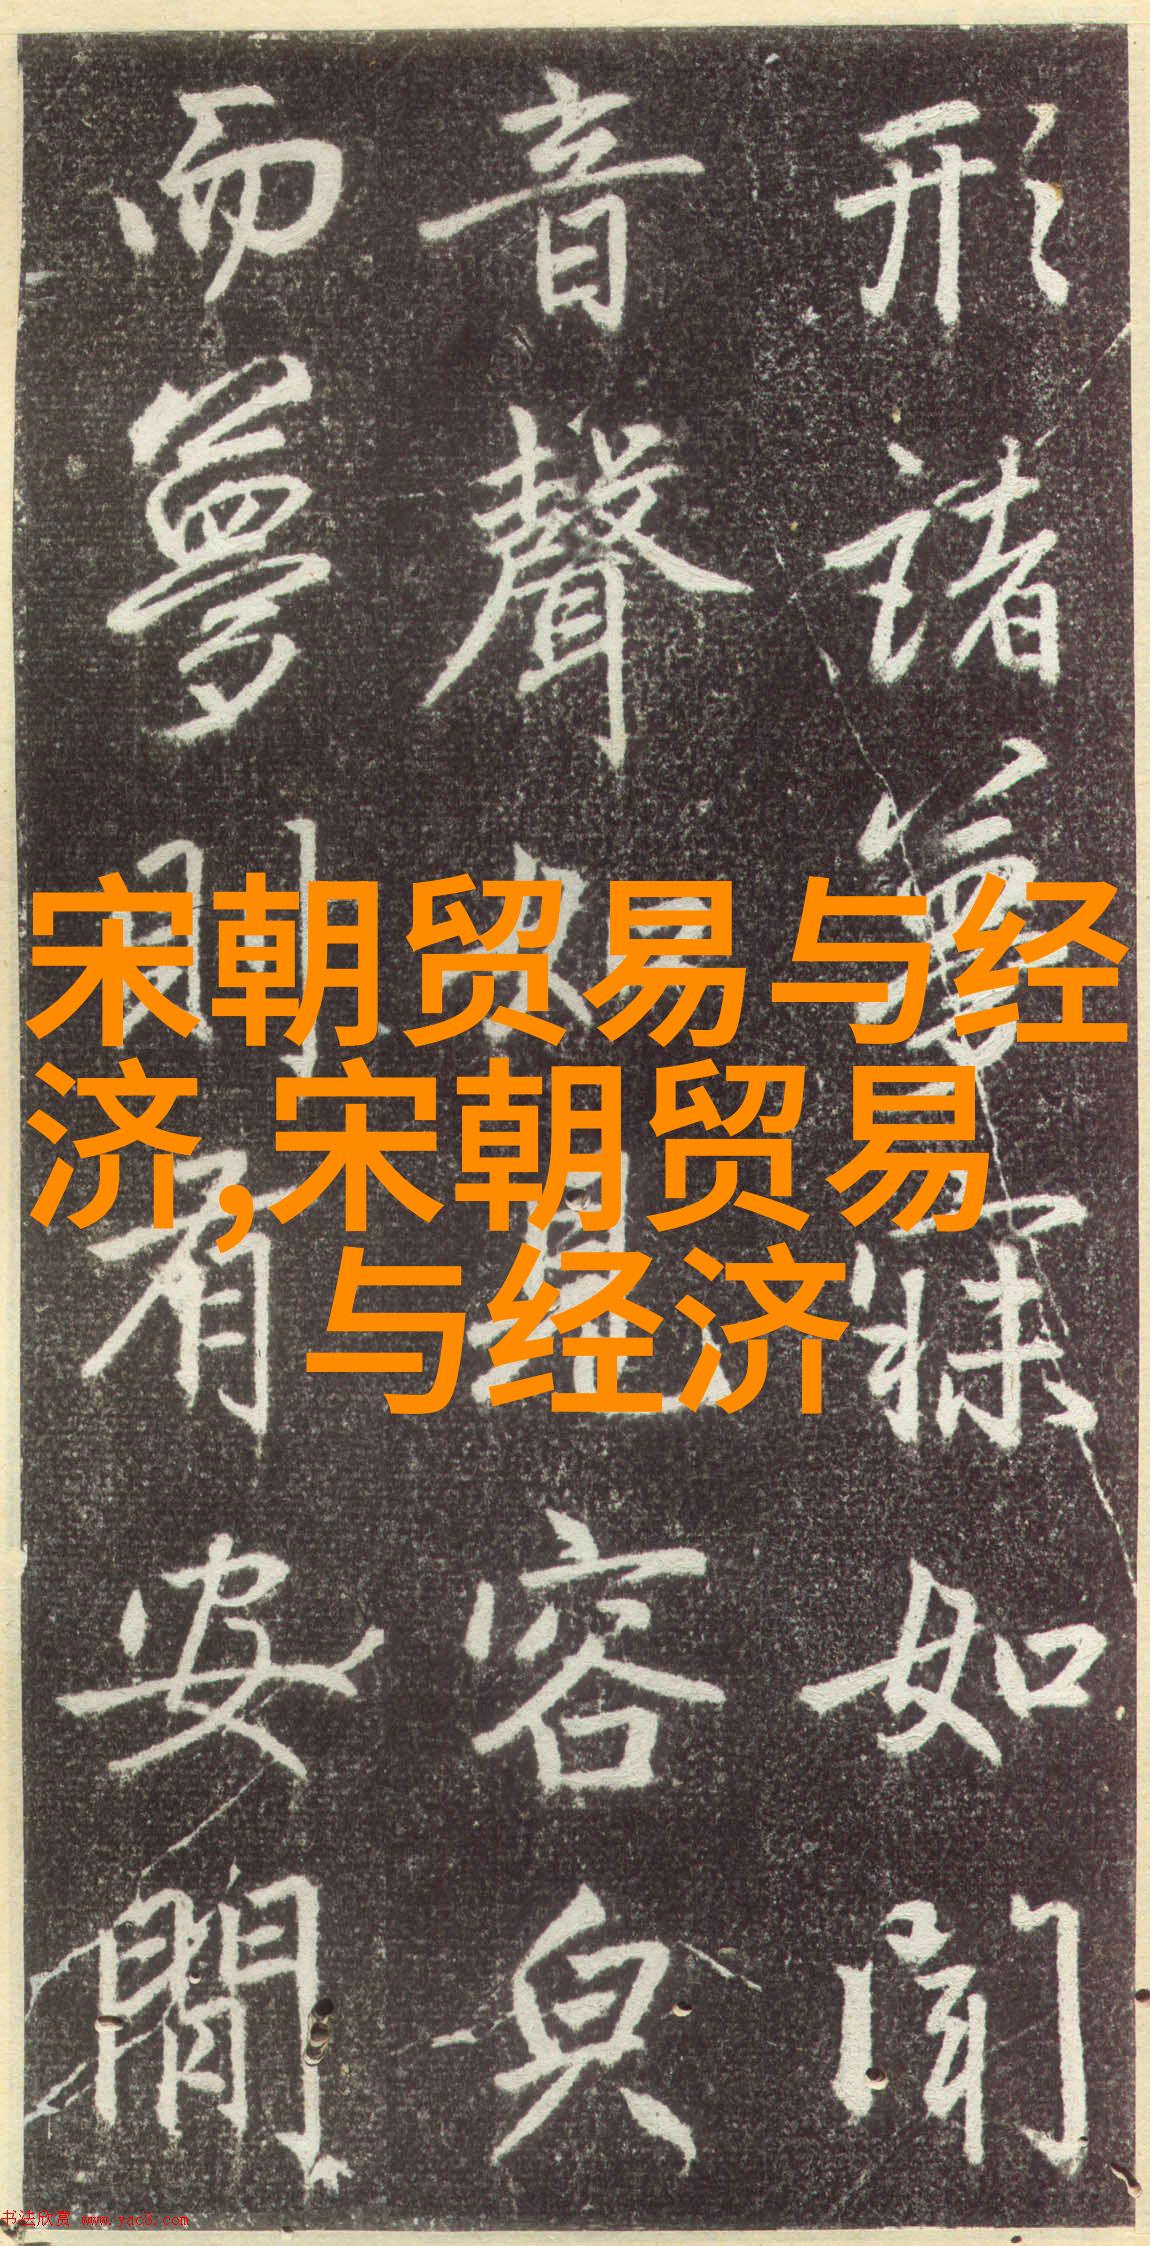 形諸夢寐如聞
音聲
容貝
而夢
看安間
宋朝贸易与经
济,宋朝贸易
与经济
书法欣赏 www.yac8.com